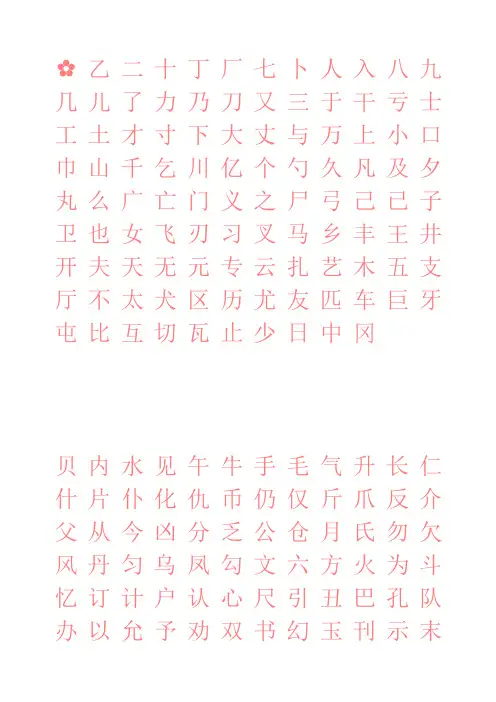 乙 二 十 丁 厂 七 卜 人 入 八 九
几 儿 了 力 乃 刀 又 三 于 干 亏 士
工 土 才 寸 下 大 丈 与 万 上 小 口
巾 山 千 乞 川 亿 个 勺 久 凡 及 夕
丸 么 广 亡 门 义 之 尸 弓 己 已 子
卫 也 女 飞 刃 习 叉 马 乡 丰 王 井
开 夫 天 无 元 专 云 扎 艺 木 五 支
厅 不 太 犬 区 历 尤 友 匹 车 巨 牙
屯 比 互 切 瓦 止 少 日 中 冈
贝 内 水 见 午 牛 手 毛 气 升 长 仁
什 片 仆 化 仇 币 仍 仅 斤 爪 反 介
父 从 今 凶 分 乏 公 仓 月 氏 勿 欠
风 丹 匀 乌 凤 勾 文 六 方 火 为 斗
忆 订 计 户 认 心 尺 引 丑 巴 孔 队
办 以 允 予 劝 双 书 幻 玉 刊 示 末